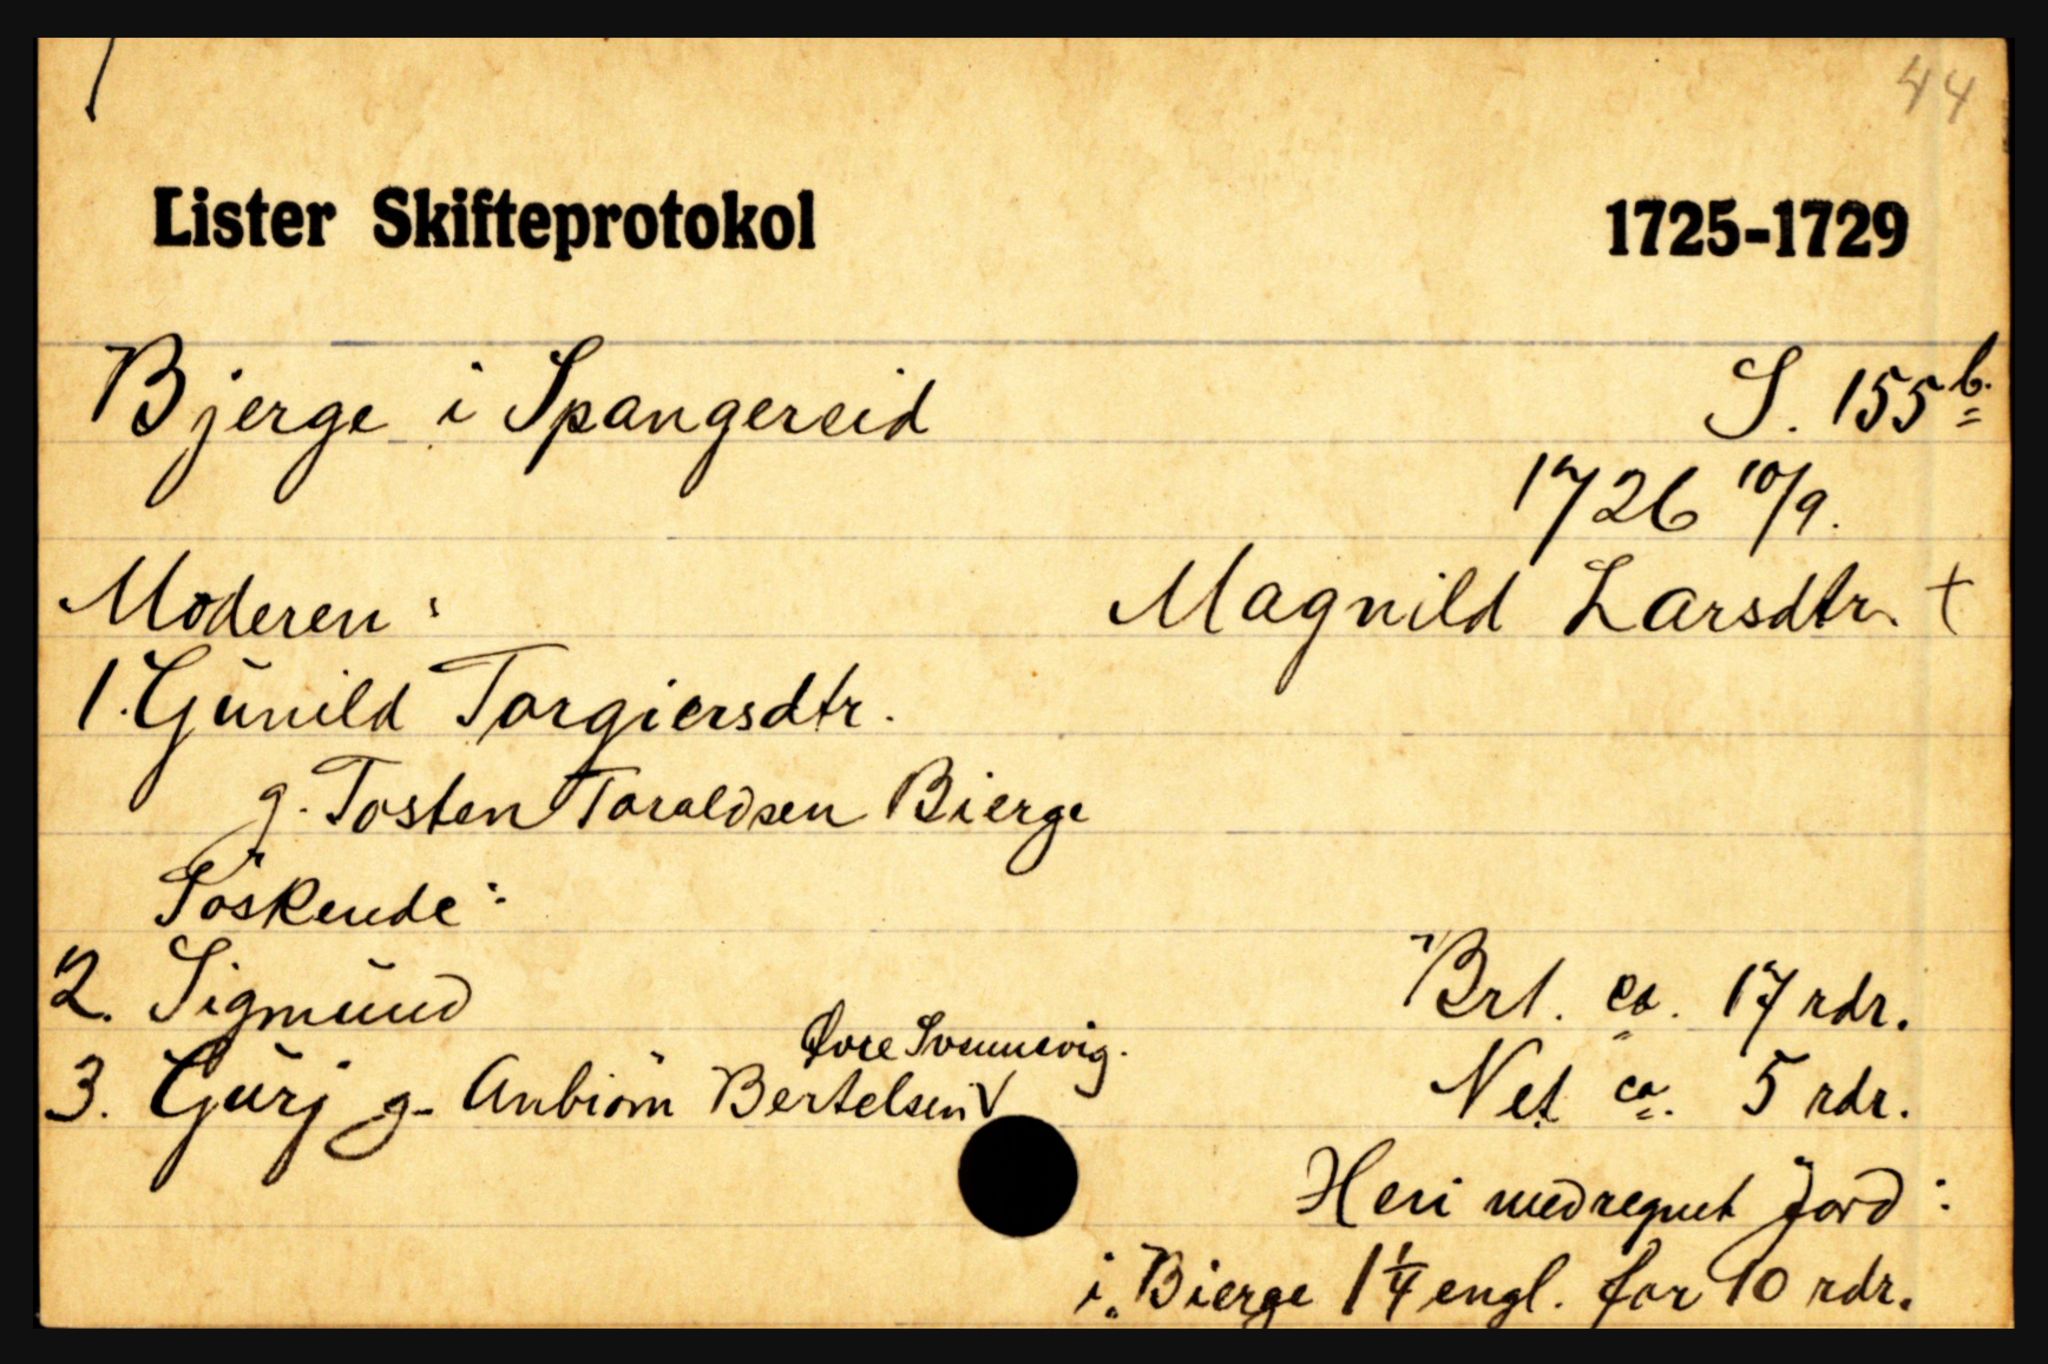 44
Lister Skifteprotokol 1725-1729
Bjerge i Spangereid S. 155 b.
1726 10/9.
Moderen: Magnild Larsdtr. +
1. Gunild Torgiersdtr.
g. Tosten Taraldsen Bierge
Söskende:
2. Sigmund Brt. ca. 17 rdr.
Øvre Svennevig.
3. Gurj g. Anbiörn Bertelsen Net ca. 5 rdr.
Heri medregnet Jord:
i Bierge 1 1/4 engl. for 10 rdr.